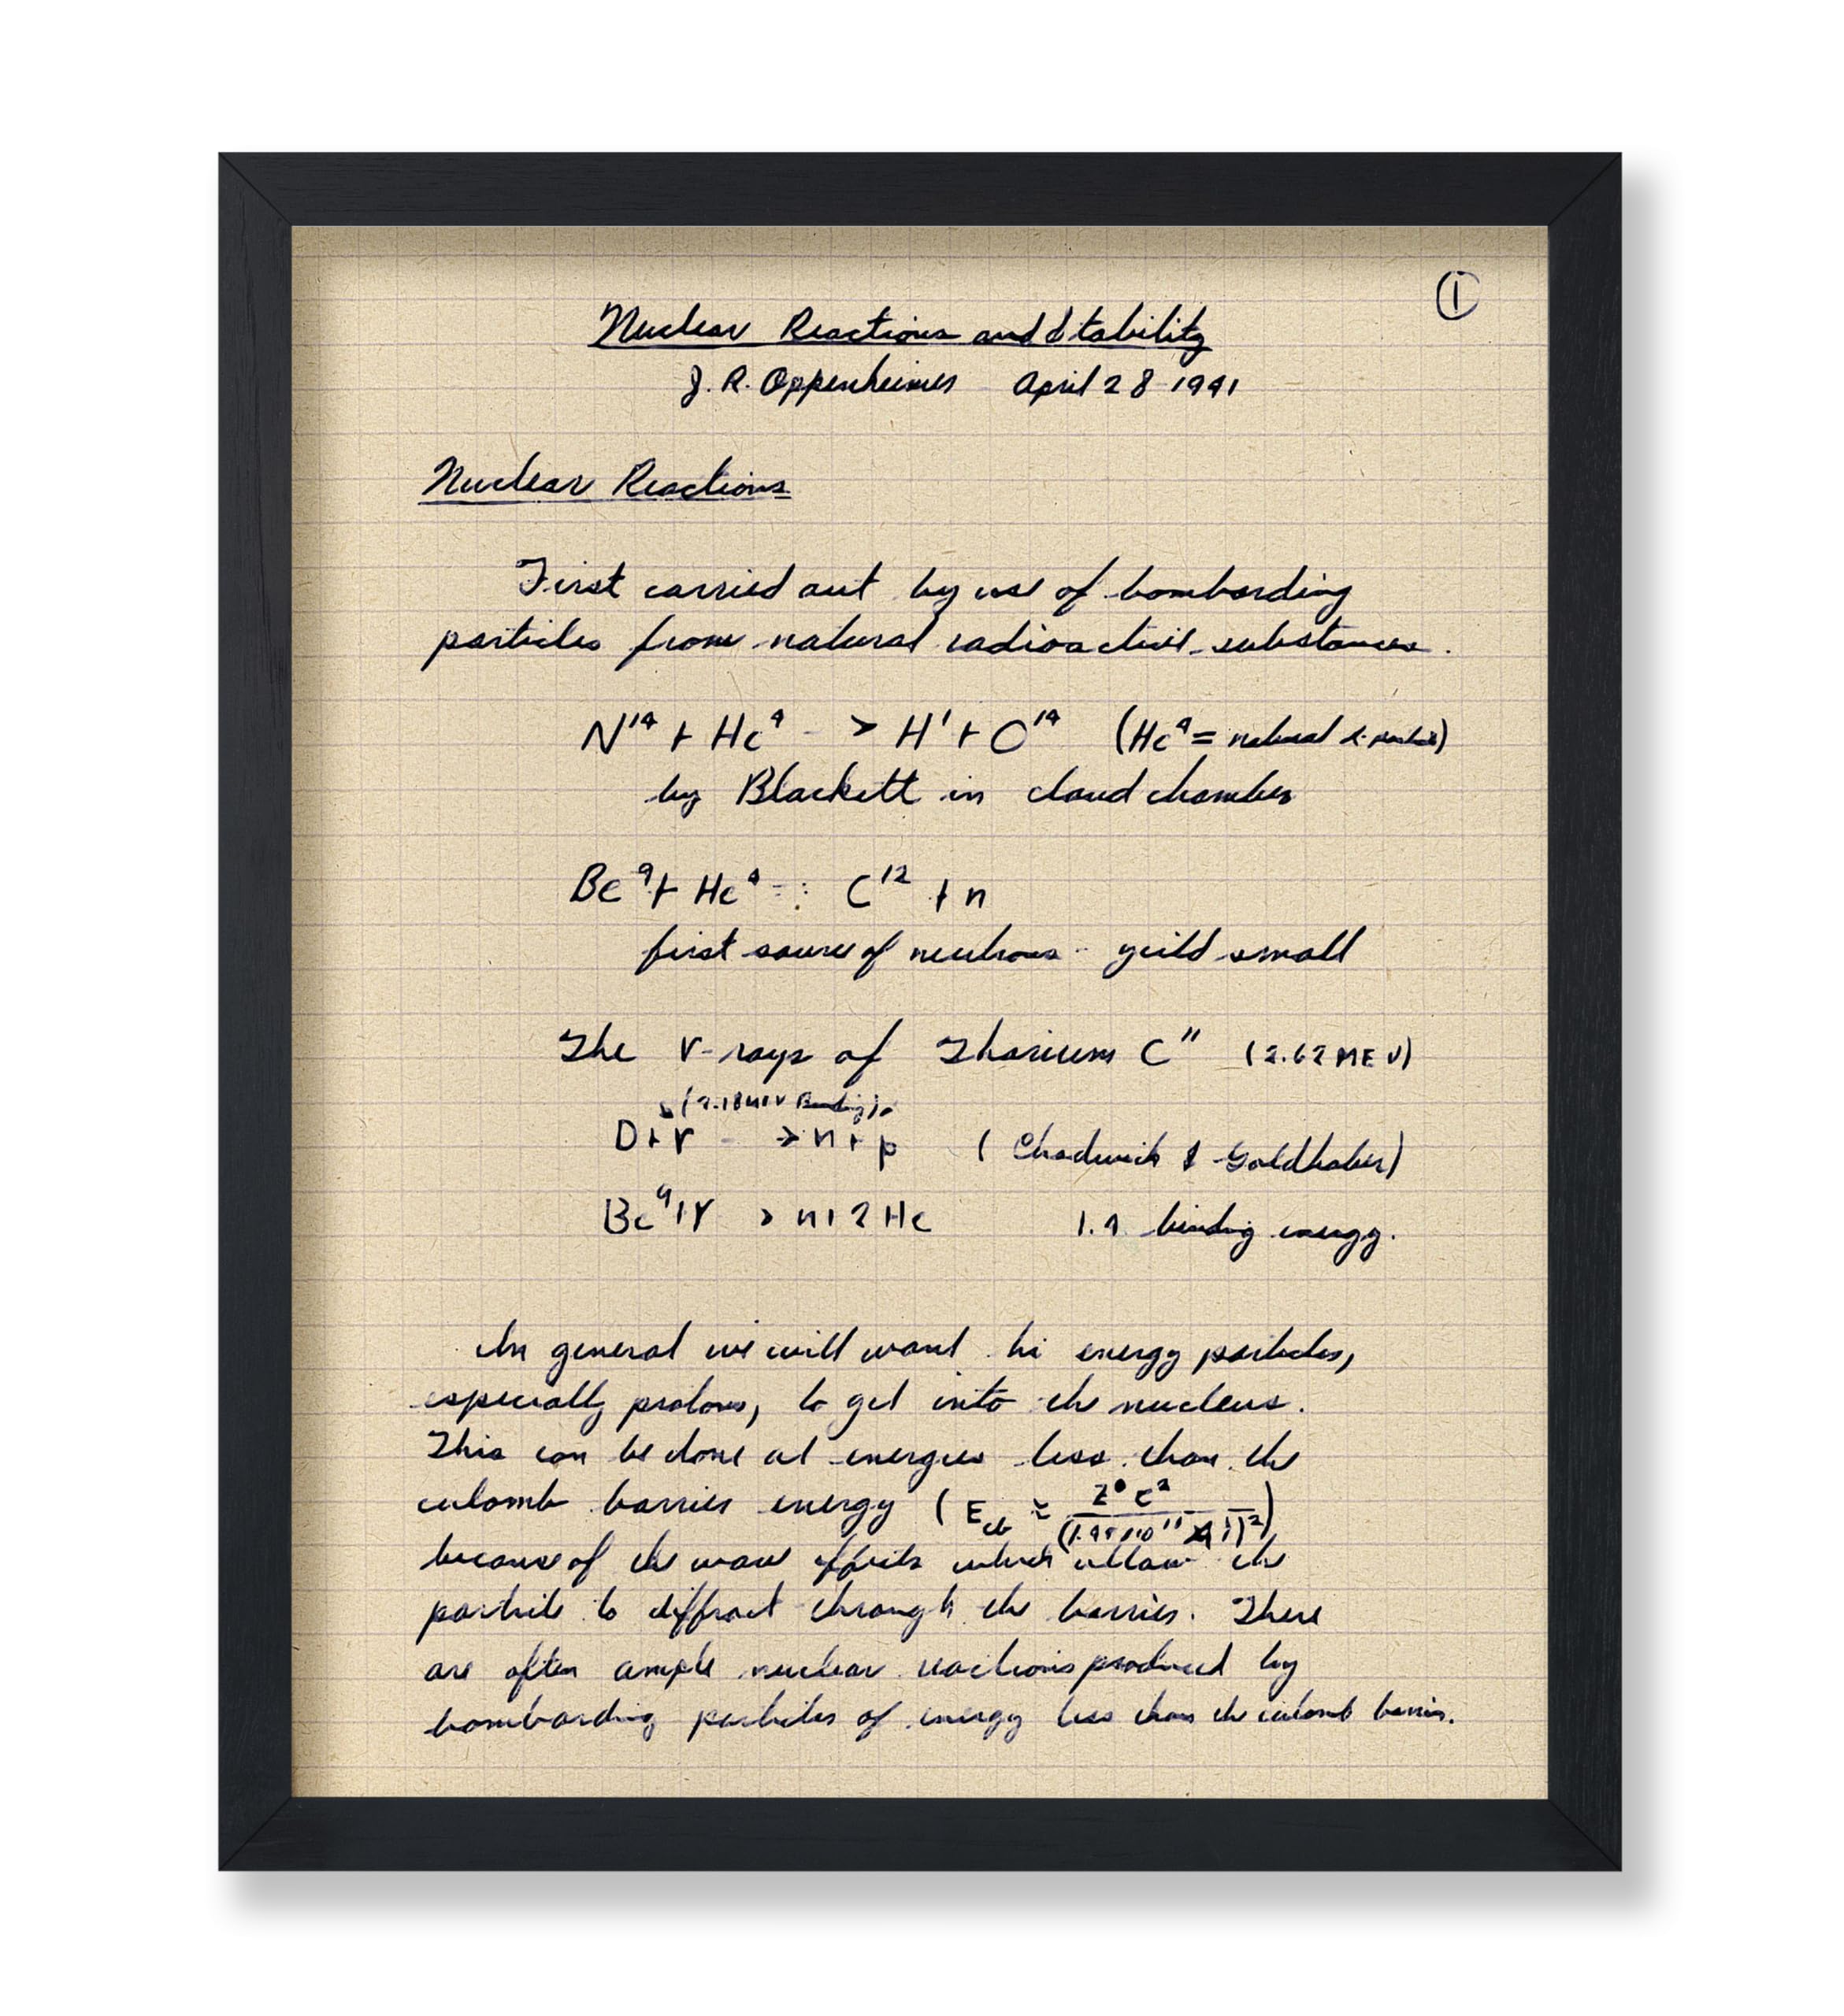 ①
Nuclear Reactions and Stability
J. R. Oppenheimer April 28 1941
Nuclear Reactions
First carried out by use of bombarding
particles from natural radioactive substances.
N¹⁴ + He⁴ -> H¹ + O¹⁴ (He⁴ = natural α-particle)
by Blackett in cloud chamber
Be⁹ + He⁴ C¹² + n
first source of neutrons - yeild small
The γ-rays of Thorium C" (2.62 MEV)
D + γ -> n + p (Chadwick & Goldhaber)
Be⁹ + γ > n + 2 He binding energy.
In general we will want hi energy particles,
especially protons, to get into the nucleus.
This can be done at energies less than the
culomb barrier energy (
because of the wave effects which allow the
particle to diffract through the barrier. There
are often ample nuclear reactions produced by
bombarding particles of energy less than the culomb barrier.